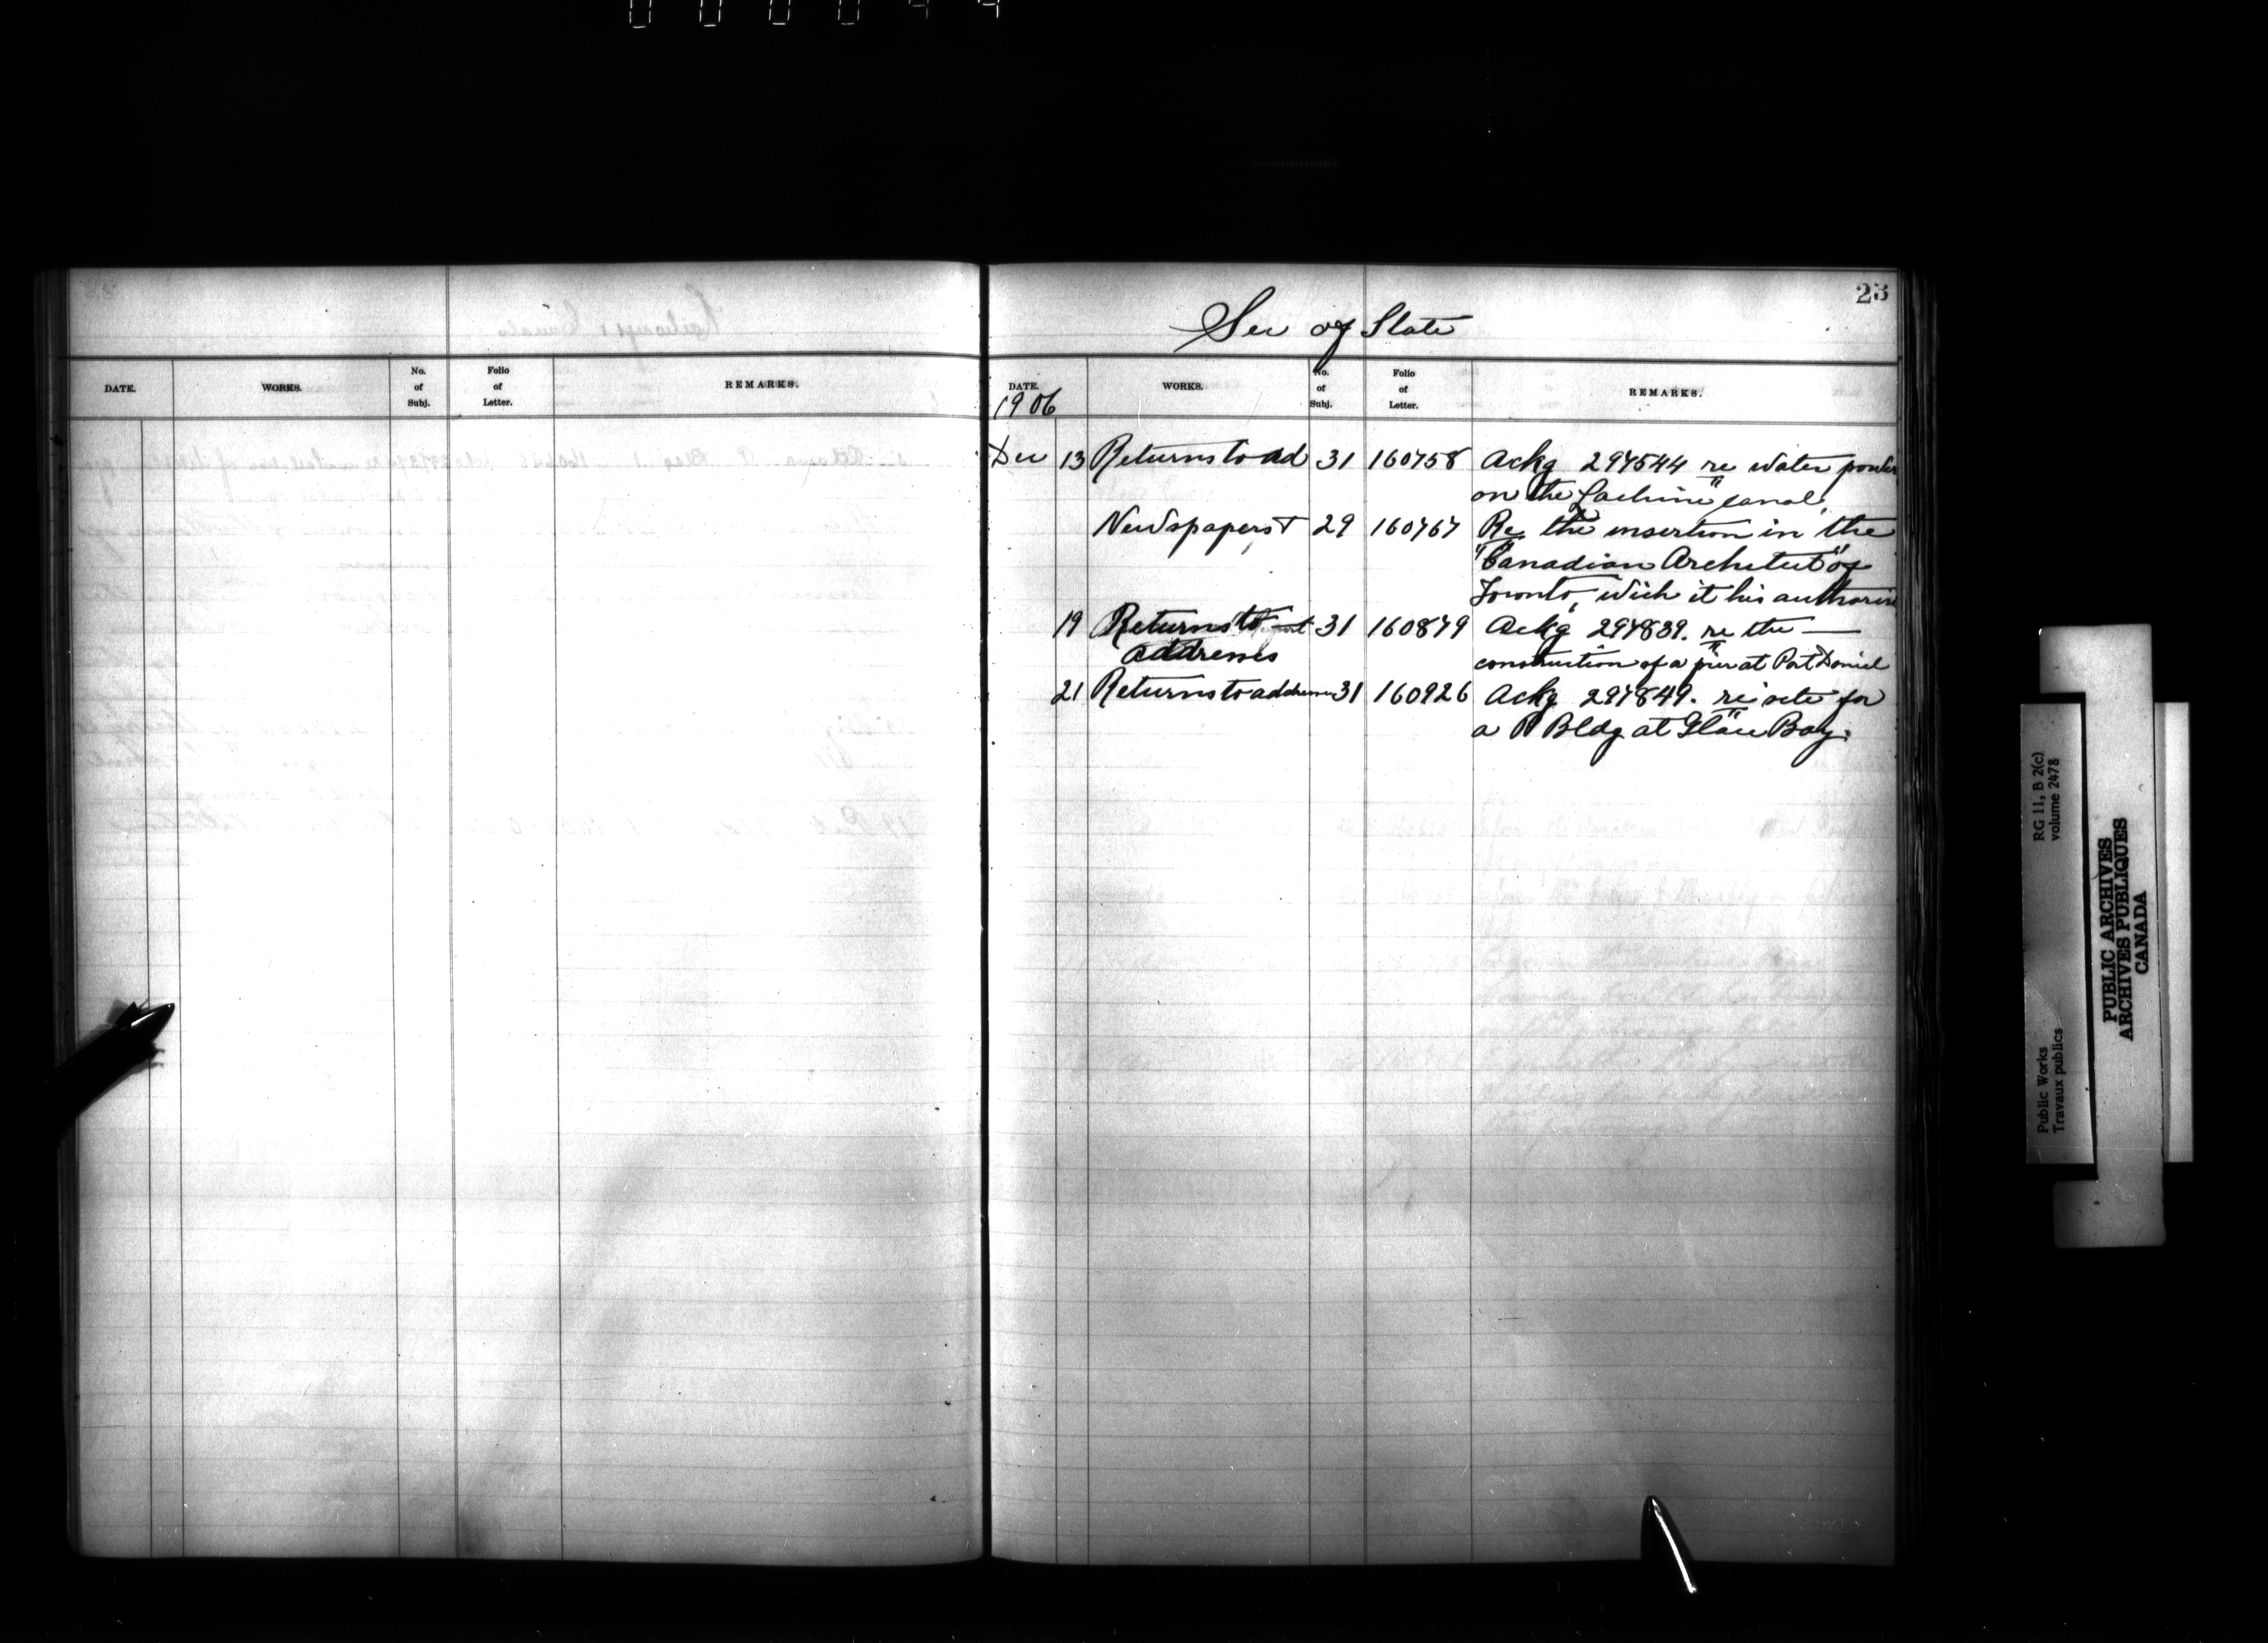 23
Sec of State
DATE. WORKS. No. of Subj. Folio of Letter. REMARKS.
DATE. WORKS. No. of Subj. Folio of Letter. REMARKS.
1906
Dec 13 Returns to ad 31 160758 Ackg 297544 re water power
on the Lachine canal,
Newspapers T 29 160767 Re the insertion in the
"Canadian Architect" of
Toronto, wich it his authorise
19 Returns to 31 160879 Ackg 297839. re the —
addresses
construction of a pier at Port Daniel
21 Returns to addresses 31 160926 Ackg 297849. re site for
a P Bldg at Glace Bay.
RG 11, B 2(c)
volume 2478
Public Works
Travaux publics
PUBLIC ARCHIVES
ARCHIVES PUBLIQUES
CANADA